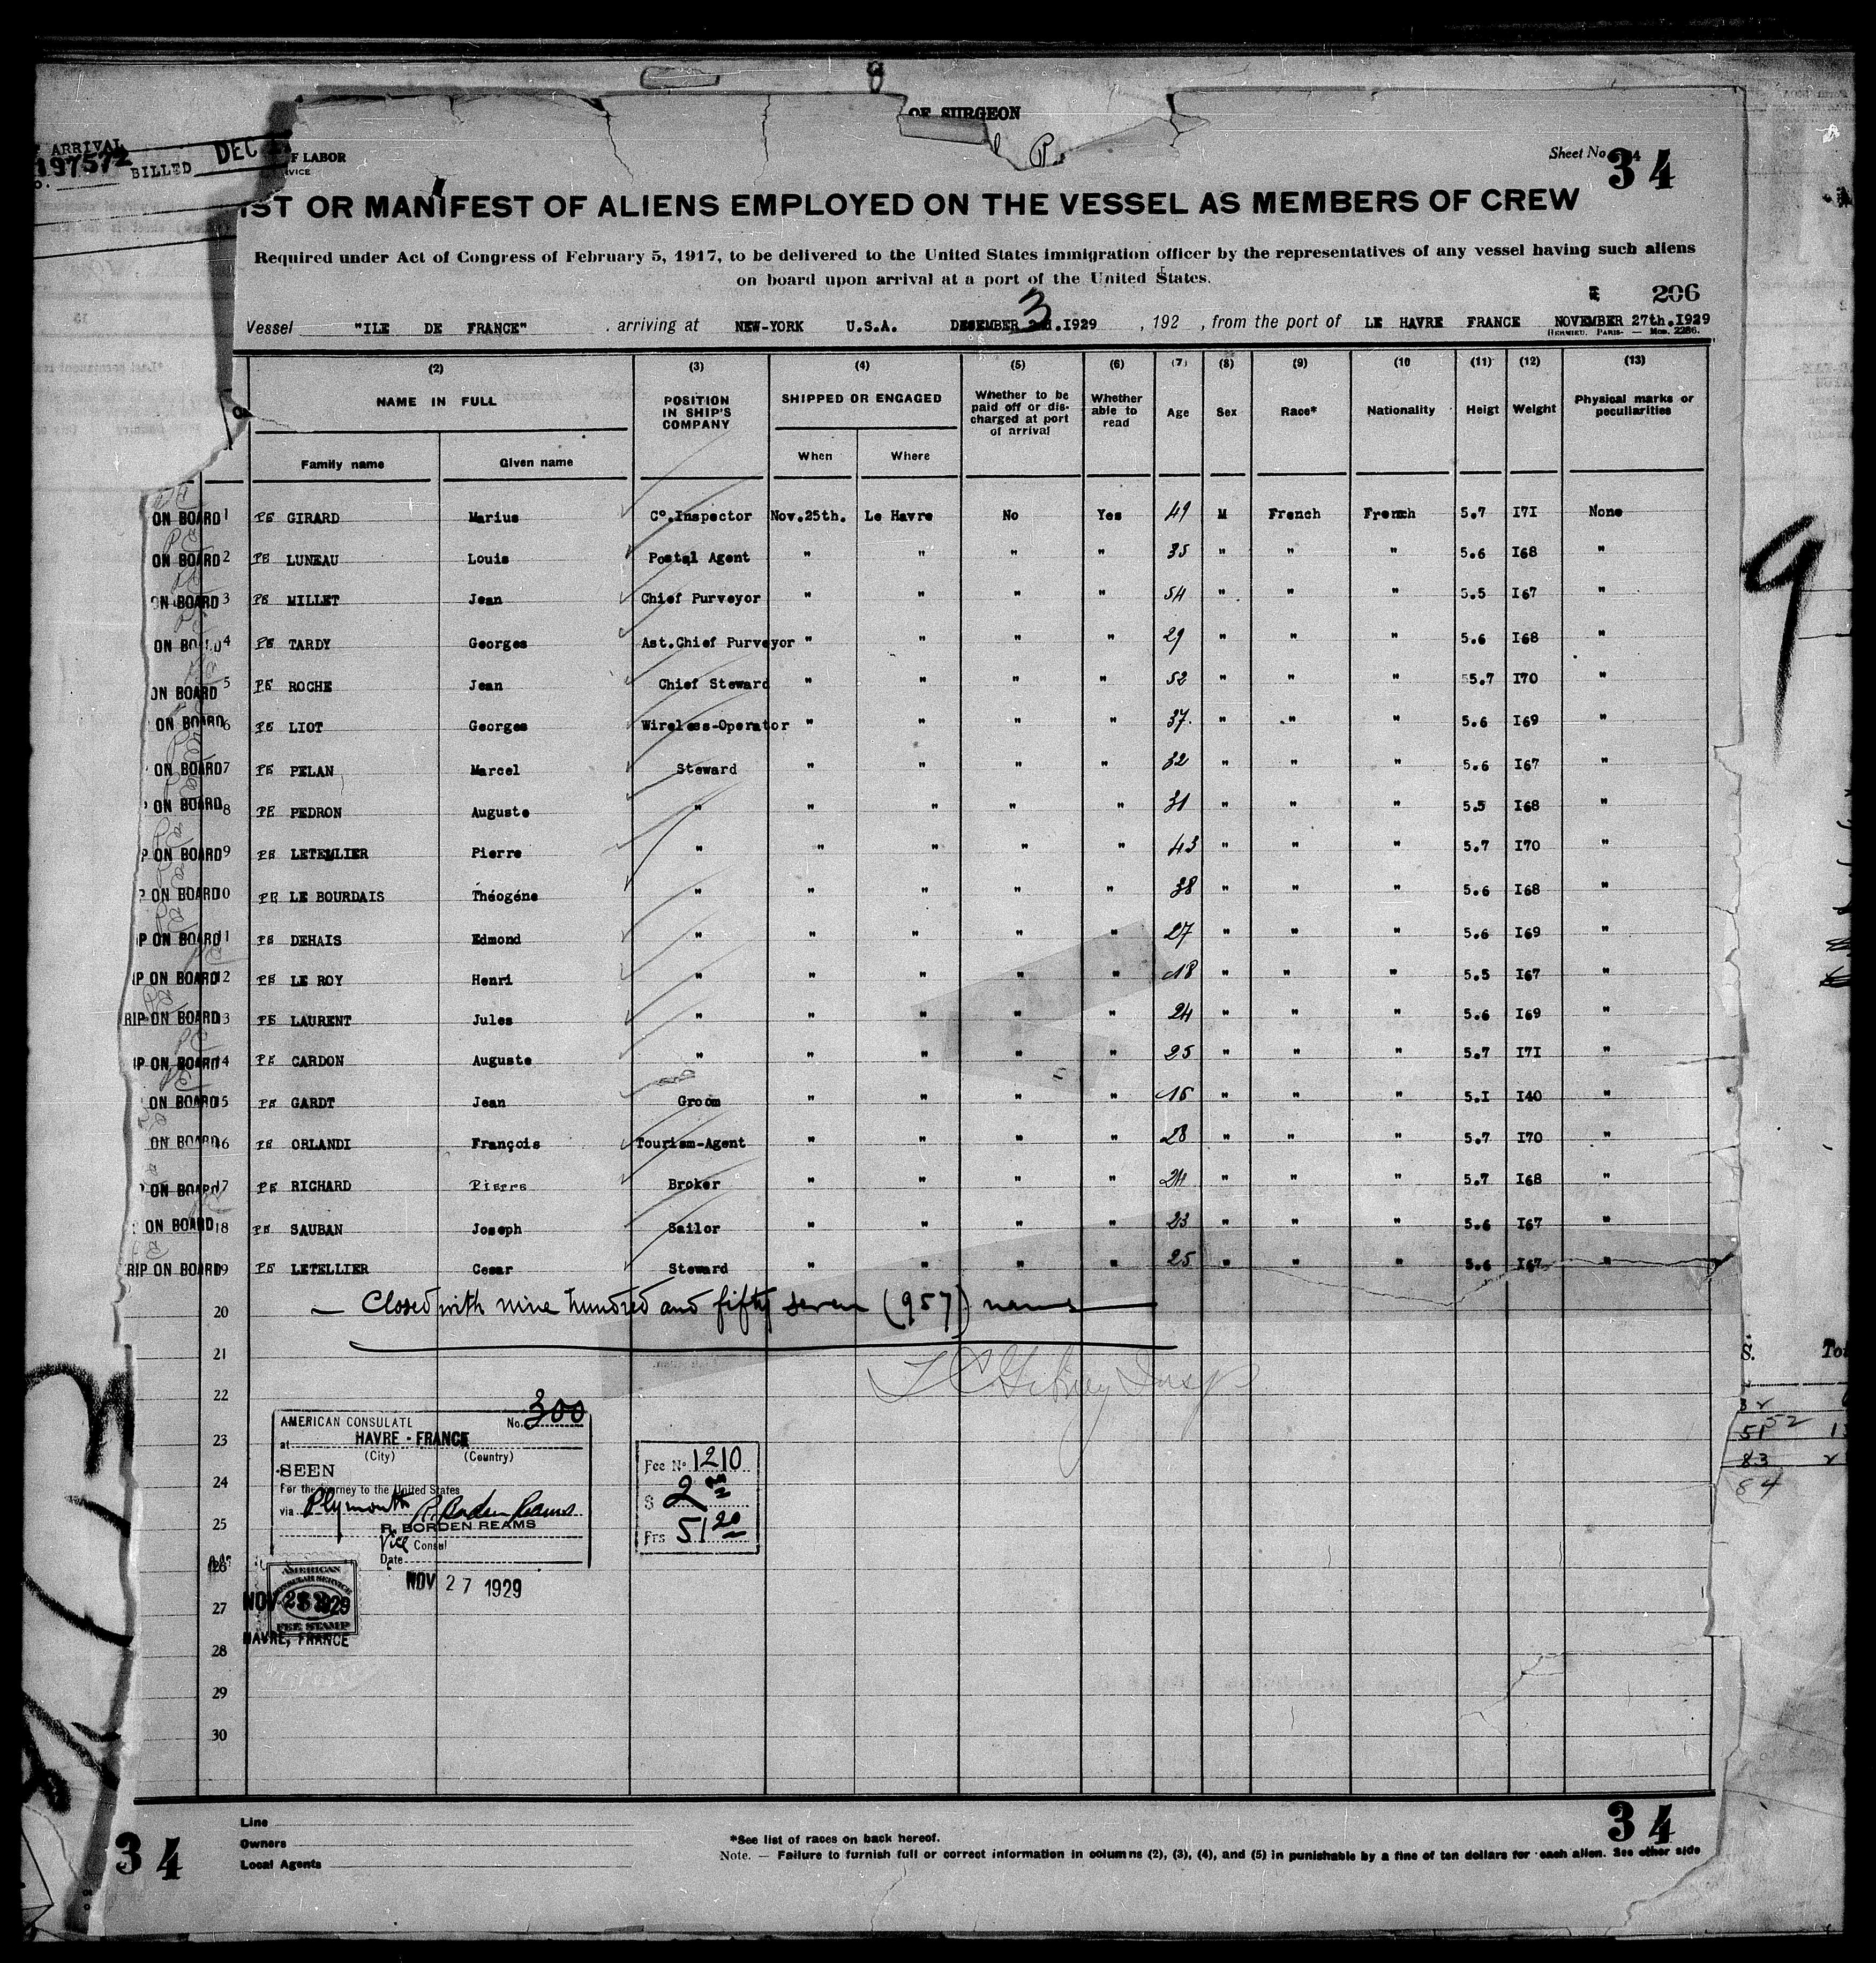 OF SURGEON
P.
ARRIVAL
197572 BILLED DEC
F LABOR
VICE
Sheet No 34
IST OR MANIFEST OF ALIENS EMPLOYED ON THE VESSEL AS MEMBERS OF CREW
Required under Act of Congress of February 5, 1917, to be delivered to the United States immigration officer by the representatives of any vessel having such aliens
on board upon arrival at a port of the United States.
206
Vessel "ILE DE FRANCE" , arriving at NEW-YORK U.S.A. DECEMBER 3 .1929 , 192 , from the port of LE HAVRE FRANCE NOVEMBER 27th.1929
HERMIEU. PARIS- — Mos. 2286.
(2) (3) (4) (5) (6) (7) (8) (9) (10 (11) (12) (13)
NAME IN FULL POSITION IN SHIP'S COMPANY SHIPPED OR ENGAGED Whether to be paid off or discharged at port of arrival Whether able to read Age Sex Race* Nationality Heigt Weight Physical marks or peculiarities
Family name Given name When Where
ON BOARD 1 PE GIRARD Marius C°.Inspector Nov.25th. Le Havre No Yes 49 M French French 5.7 I7I None
ON BOARD 2 PE LUNEAU Louis Postal Agent " " " " 35 " " " 5.6 I68 "
ON BOARD 3 PE MILLET Jean Chief Purveyor " " " " 54 " " " 5.5 I67 "
ON BOARD 4 PE TARDY Georges Ast.Chief Purveyor " " " " 29 " " " 5.6 I68 "
ON BOARD 5 PE ROCHE Jean Chief Steward " " " " 52 " " " 55.7 I70 "
ON BOARD 6 PE LIOT Georges Wireless-Operator " " " " 37. " " " 5.6 I69 "
ON BOARD 7 PE PELAN Marcel Steward " " " " 32 " " " 5.6 I67 "
ON BOARD 8 PE PEDRON Auguste " " " " " 31 " " " 5.5 I68 "
P ON BOARD 9 PE LETEMLIER Pierre " " " " " 43 " " " 5.7 I70 "
P ON BOARD 10 PE LE BOURDAIS Théogéne " " " " " 38 " " " 5.6 I68 "
IP ON BOARD 11 PE DEHAIS Edmond " " " " " 27 " " " 5.6 I69 "
IP ON BOARD 12 PE LE ROY Henri " " " " " 18 " " " 5.5 I67 "
RIP ON BOARD 13 PE LAURENT Jules " " " " " 24 " " " 5.6 I69 "
IP ON BOARD 14 PE CARDON Auguste " " " " " 25 " " " 5.7 I7I "
ON BOARD 15 PE GARDT Jean Groom " " " " 16 " " " 5.I I40 "
ON BOARD 16 PE ORLANDI François Tourism-Agent " " " " 28 " " " 5.7 I70 "
P ON BOARD 17 PE RICHARD Pierre Broker " " " " 24 " " " 5.7 I68 "
ON BOARD 18 PE SAUBAN Joseph Sailor " " " " 23 " " " 5.6 I67 "
RIP ON BOARD 19 PE LETELLIER Cesar Steward " " " " 25 " " " 5.6 I67 "
20 — Closed with nine hundred and fifty seven (957) names
21
22
23
24
25
26
27
28
29
30
AMERICAN CONSULATE No. 300
at HAVRE - FRANCE
(City) (Country)
SEEN
For the journey to the United States
via Plymouth R. Borden Reams
R. BORDEN REAMS
Vice Consul
Date
NOV 27 1929
AMERICAN
CONSULAR SERVICE
FEE STAMP
HAVRE, FRANCE
Fee No 1210
$ 2
Frs 51 20
9
S. Tot
51 52
83
84
Line
Owners
Local Agents
*See list of races on back hereof.
Note. — Failure to furnish full or correct information in columns (2), (3), (4), and (5) in punishable by a fine of ten dollars for each alien. See other side
34
34